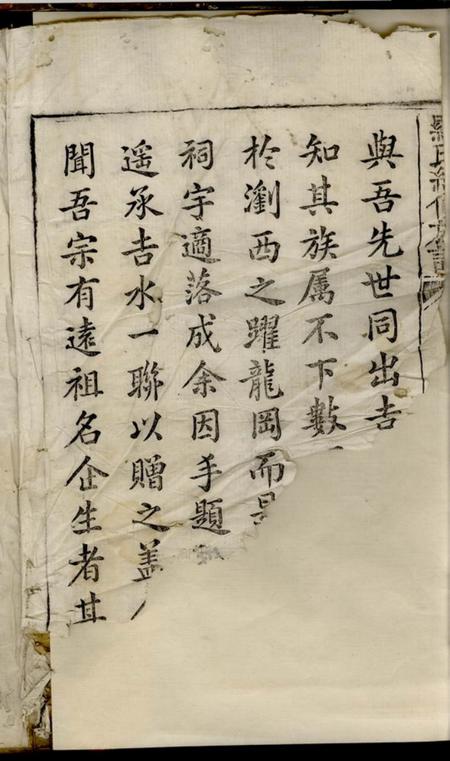 與吾先世同出吉
知其族属不下數
扵瀏西之躍龍岡而
祠宇適落成余因手題
遥承吉水一聯以贈之盖
聞吾宗有遠祖名企生者其